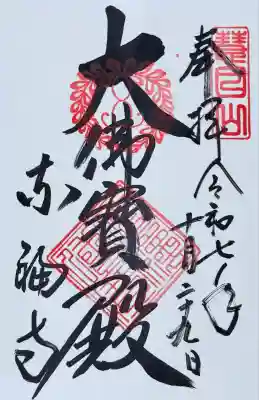 慧日山
奉拝 令和七年
十月二十九日
大佛寶殿
東福寺